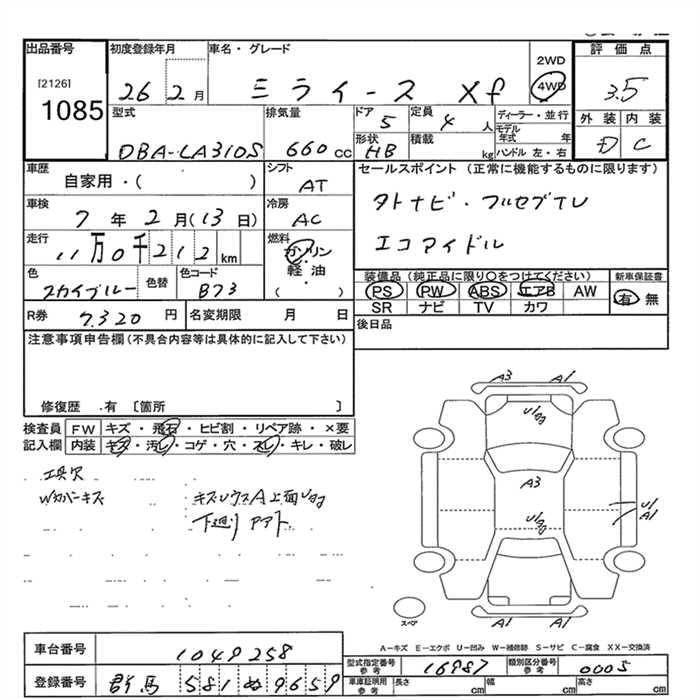 出品番号 初度登録年月 車名・グレード 2WD 評価点
[2126] 1085 26 2月 ミライース Xf 4WD 3.5
外装 内装
D C
型式 排気量 ドア 定員 ディーラー・並行
DBA-LA310S 660cc 5 4人 モデル年式 年
形状 積載
HB kg ハンドル 左・右
車歴 シフト セールスポイント (正常に機能するものに限ります)
自家用・( ) AT タトナビ・フルセグTV
車検 冷房
7年2月(13日) AC エコアイドル
走行 燃料
11万0千212km ガソリン
軽油
( )
色 色替 色コード
スカイブルー B73
装備品 (純正品に限り○をつけてください) 新車保証書
PS PW ABS エアB AW 有 無
SR ナビ TV カワ
R券 7,320円 名変期限 月 日 後日品
注意事項申告欄(不具合内容等は具体的に記入して下さい)
修復歴 .有 〔箇所 〕
検査員 FW キズ・飛石・ヒビ割・リペア跡・×要
記入欄 内装 キズ・汚レ・コゲ・穴・スレ・キレ・破レ
工具欠
Wカバーキズ
下廻り
A3 A1
A3
U1
A1
スペア
A1 A1
A-キズ E-エクボ U-凹み W-補修跡 S-サビ C-腐食 XX-交換済
車台番号 1049258
登録番号 群馬 581 ぬ 9659
型式指定番号 参考 16987 類別区分番号 参考 0005
車庫証明用 参考 長さ cm 幅 cm 高さ cm